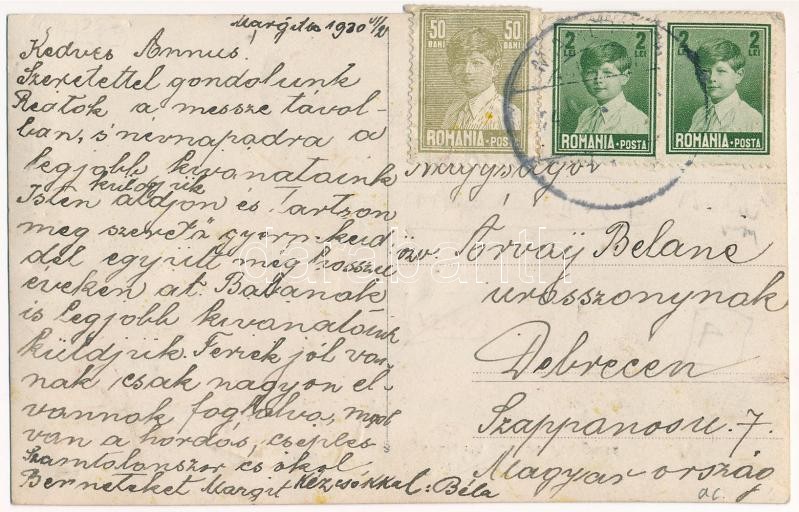 Margita 1930
Kedves Annus.
Szeretettel gondolunk
Reátok a messze távol-
ban, s névnapodra a
legjobb kivanataink
küldjük
Isten áldjon és tartson
meg szerető gyermekeid
del együtt még hosszu
éveken at. Babanak
is legjobb kivanataink
küldjük. Feriék jól van
nak csak nagyon el-
vannak foglalva, most
van a hordás, cséplés
Számtalanszor és ókol
Benneteket Margit
Kézcsókkal: Béla
50 BANI 50 BANI
ROMANIA • POSTA
2 LEI 2 LEI
ROMANIA • POSTA
2 LEI 2 LEI
ROMANIA • POSTA
Nagyságos
özv. Arvaÿ Belane
urasszonynak
Debrecen
Szappanosu. 7.
Magyarország
darabanth